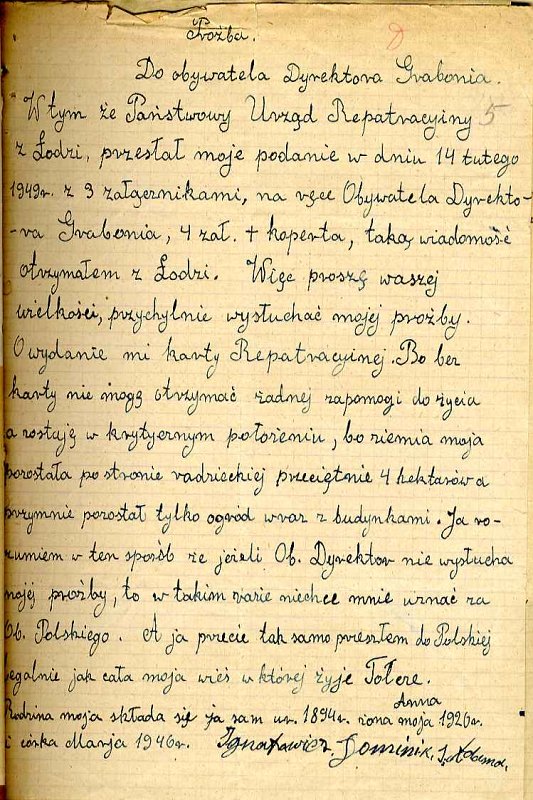 Proźba.
Do obywatela Dyrektora Grabonia.
W tym że Państwowy Urząd Repatracyiny 5
z Łodzi, przesłał moje podanie w dniu 14 Łutego
1949r. z 3 załącznikami, na ręce Obywatela Dyrekto-
-ra Grabonia, 4 zał. + koperta, taką wiadomość
otrzymałem z Łodzi. Więc proszę waszej
wielkości, przychylnie wysłuchać mojej proźby.
O wydanie mi karty Repatracyinej. Bo bez
karty nie mogę otrzymać żadnej zapomogi do życia
a zostaję w krytycznym położeniu, bo ziemia moja
pozostała po stronie radzieckiej przeciętnie 4 hektarów a
przymnie pozostał tylko ogród wraz z budynkami. Ja ro-
zumiem w ten sposób że jeżeli Ob. Dyrektor nie wysłucha
mojéj proźby, to w takim razie niechce mnie uznać za
Ob. Polskiego. A ja przecie tak samo przeszłem do Polskiej
legalnie jak cała moja wieś w której żyje Tołcze.
Rodzina moja składa się ja sam ur. 1894r. żona moja Anna 1926r.
i córka Marja 1946r. Ignatowicz Dominik, s. Adama.